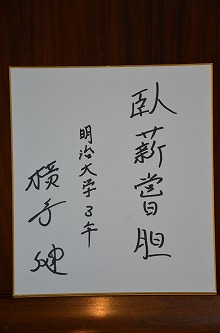 臥薪嘗胆
明治大学3年
横手健